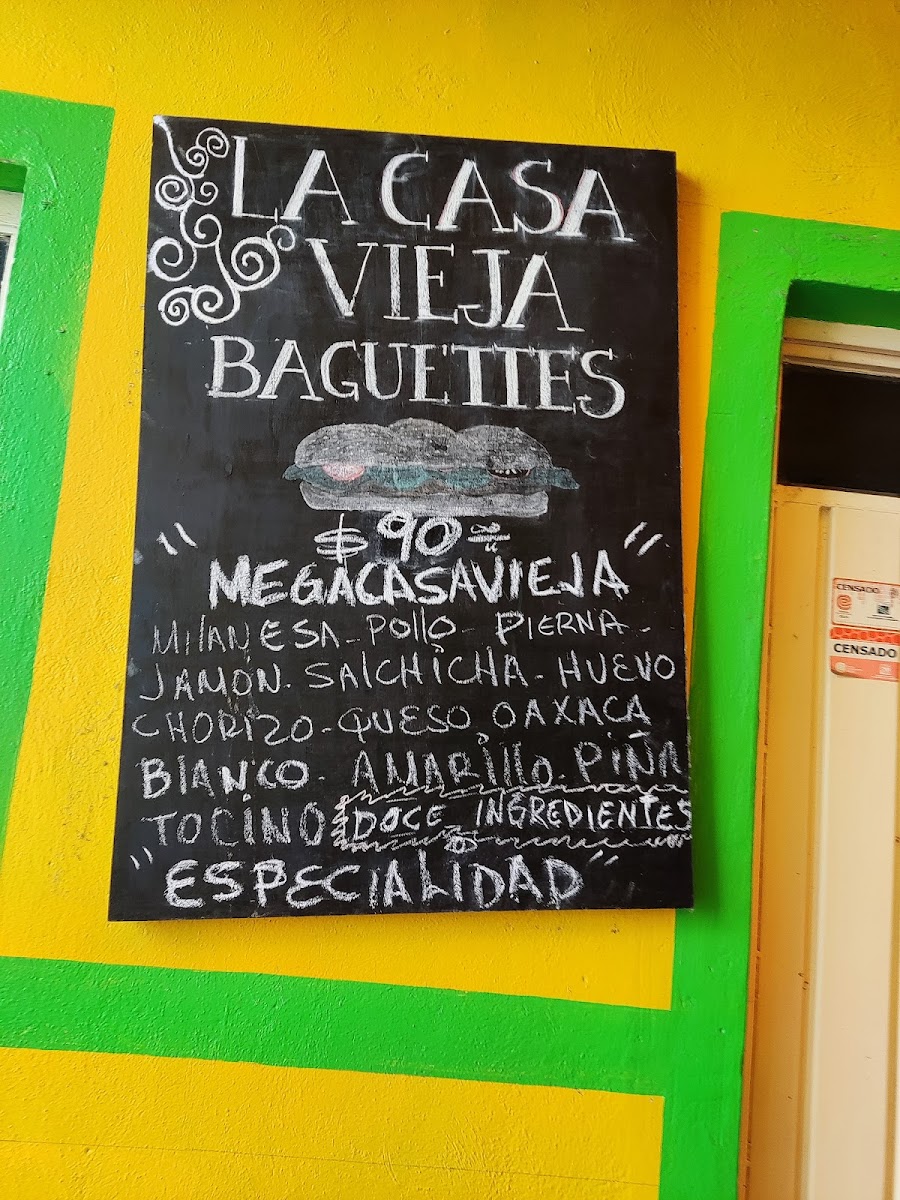 LA CASA
VIEJA
BAGUETTES
$90
"MEGACASAVIEJA"
MILANESA - POLLO - PIERNA -
JAMÓN - SALCHICHA - HUEVO
CHORIZO - QUESO OAXACA
BLANCO - AMARILLO - PIÑA
TOCINO DOCE INGREDIENTES
"ESPECIALIDAD"
CENSADO
CENSADO